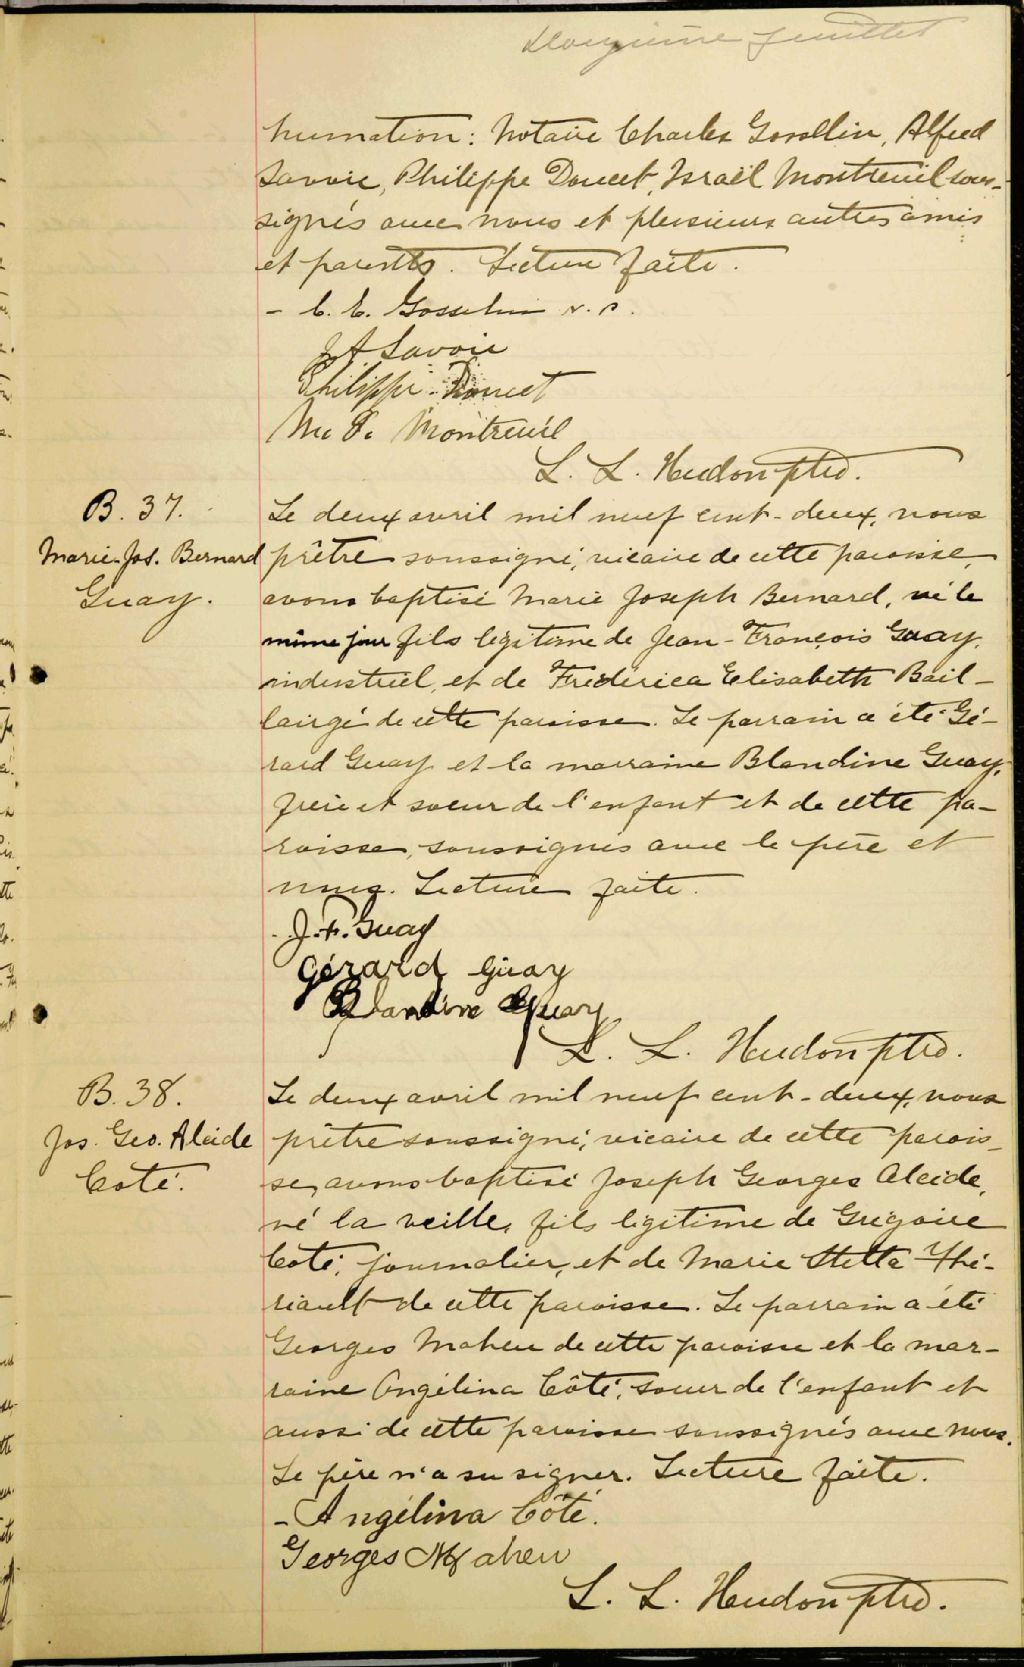 feuillet
humation: Notaire Charles Gosselin, Alfred
Savoie, Philippe Doucet, Israël Montreuil sous-
signés avec nous et plusieurs autres amis
et parents. Lecture faite.
- C. E. Gosselin N. P.
J A Savoie
Philippe Doucet
Montreuil
L. L. Hudon ptre.
B. 37.
Marie-Jos. Bernard
Guay.
Le deux avril mil neuf cent-deux, nous
prêtre soussigné, vicaire de cette paroisse,
avons baptisé Marie Joseph Bernard, né le
même jour fils légitime de Jean-François Guay,
industriel, et de Frédérica Elisabeth Bail-
lairgé de cette paroisse. Le parrain a été Gé-
rard Guay et la marraine Blandine Guay,
frère et soeur de l'enfant et de cette pa-
roisse, soussignés avec le père et
nous. Lecture faite.
J. F. Guay
Gérard Guay
Blandine Guay
L. L. Hudon ptre.
B. 38.
Jos. Geo. Alcide
Coté.
Le deux avril mil neuf cent-deux, nous
prêtre soussigné, vicaire de cette parois-
se, avons baptisé Joseph Georges Alcide,
né la veille, fils légitime de Grégoire
Coté, journalier, et de Marie Stella Thé-
riault de cette paroisse. Le parrain a été
Georges Maheu de cette paroisse et la mar-
raine Angélina Côté, soeur de l'enfant et
aussi de cette paroisse soussignés avec nous.
Le père n'a su signer. Lecture faite.
- Angélina Côté.
Georges Maheu
L. L. Hudon ptre.